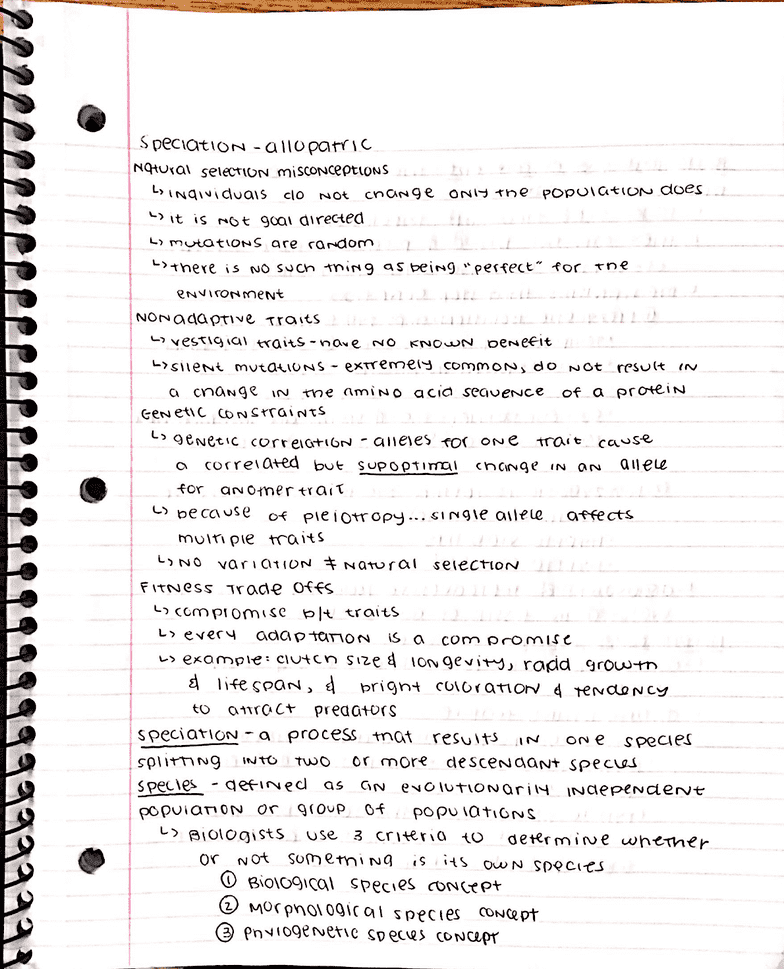 Speciation - allopatric
Natural selection misconceptions
↳ individuals do not change only the population does
↳ it is not goal directed
↳ mutations are random
↳ there is no such thing as being "perfect" for the
environment
Nonadaptive traits
↳ vestigial traits - have no known benefit
↳ silent mutations - extremely common, do not result in
a change in the amino acid sequence of a protein
Genetic constraints
↳ genetic correlation - alleles for one trait cause
a correlated but supoptimal change in an allele
for another trait
↳ because of pleiotropy... single allele affects
multiple traits
↳ no variation ≠ natural selection
Fitness trade offs
↳ compromise b/t traits
↳ every adaptation is a compromise
↳ example: clutch size & longevity, rapid growth
& lifespan, & bright coloration & tendency
to attract predators
Speciation - a process that results in one species
splitting into two or more descendant species
Species - defined as an evolutionarily independent
population or group of populations
↳ Biologists use 3 criteria to determine whether
or not something is its own species
① Biological species concept
② Morphological species concept
③ Phylogenetic species concept